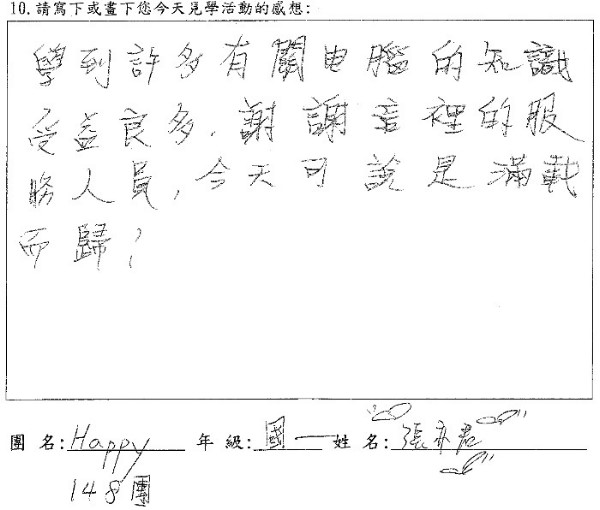 10. 請寫下或畫下您今天見學活動的感想:
學到許多有關电腦的知識
受益良多, 謝謝這裡的服
務人員, 今天可說是滿載
而歸!
團 名: Happy 年 級: 國一 姓 名: 張亦君
148團